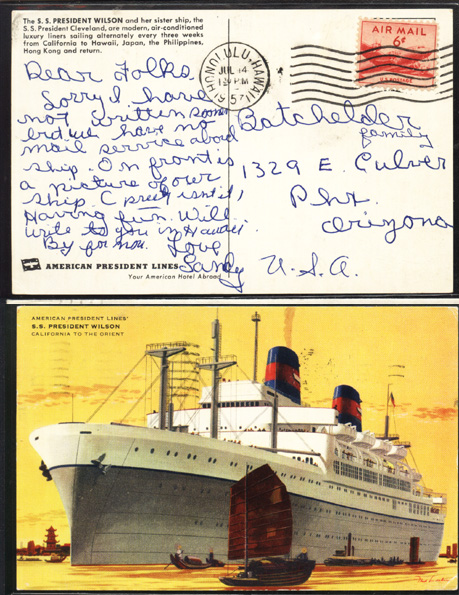 The S. S. PRESIDENT WILSON and her sister ship, the
S. S. President Cleveland, are modern, air-conditioned
luxury liners sailing alternately every three weeks
from California to Hawaii, Japan, the Philippines,
Hong Kong and return.
HONOLULU, HAWAII
JUL 14
12 PM
57
AIR MAIL
6¢
U.S. POSTAGE
Dear Folks,
Sorry I have
not written sooner
but we have no
mail service aboard
ship. On front is
a picture of our
ship. (pretty isn't it)
Having fun. Will
write to you in Hawaii.
By for now. Love
Sandy
Batchelder
family
1329 E. Culver
Phx.
Arizona
U.S.A.
AMERICAN PRESIDENT LINES
Your American Hotel Abroad
AMERICAN PRESIDENT LINES'
S.S. PRESIDENT WILSON
CALIFORNIA TO THE ORIENT